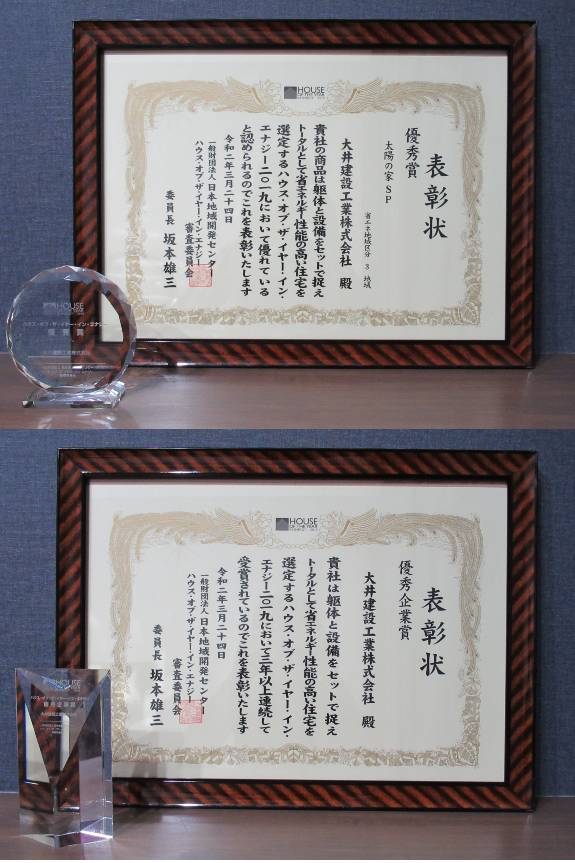 HOUSE
OF THE YEAR
表彰状
優秀賞
太陽の家SP
省エネ地域区分 3 地域
大井建設工業株式会社 殿
貴社の商品は躯体と設備をセットで捉え
トータルとして省エネルギー性能の高い住宅を
選定するハウス・オブ・ザ・イヤー・イン・
エナジー二〇一九において優れている
と認められるのでこれを表彰いたします
令和二年三月二十四日
一般財団法人 日本地域開発センター
ハウス・オブ・ザ・イヤー・イン・エナジー
審査委員会
委員長 坂本雄三
HOUSE
ハウス・オブ・ザ・イヤー・イン・エナジー
優秀賞
HOUSE
OF THE YEAR
表彰状
優秀企業賞
大井建設工業株式会社 殿
貴社は躯体と設備をセットで捉え
トータルとして省エネルギー性能の高い住宅を
選定するハウス・オブ・ザ・イヤー・イン・
エナジー二〇一九において三年以上連続して
受賞されているのでこれを表彰いたします
令和二年三月二十四日
一般財団法人 日本地域開発センター
ハウス・オブ・ザ・イヤー・イン・エナジー
審査委員会
委員長 坂本雄三
HOUSE
優秀企業賞